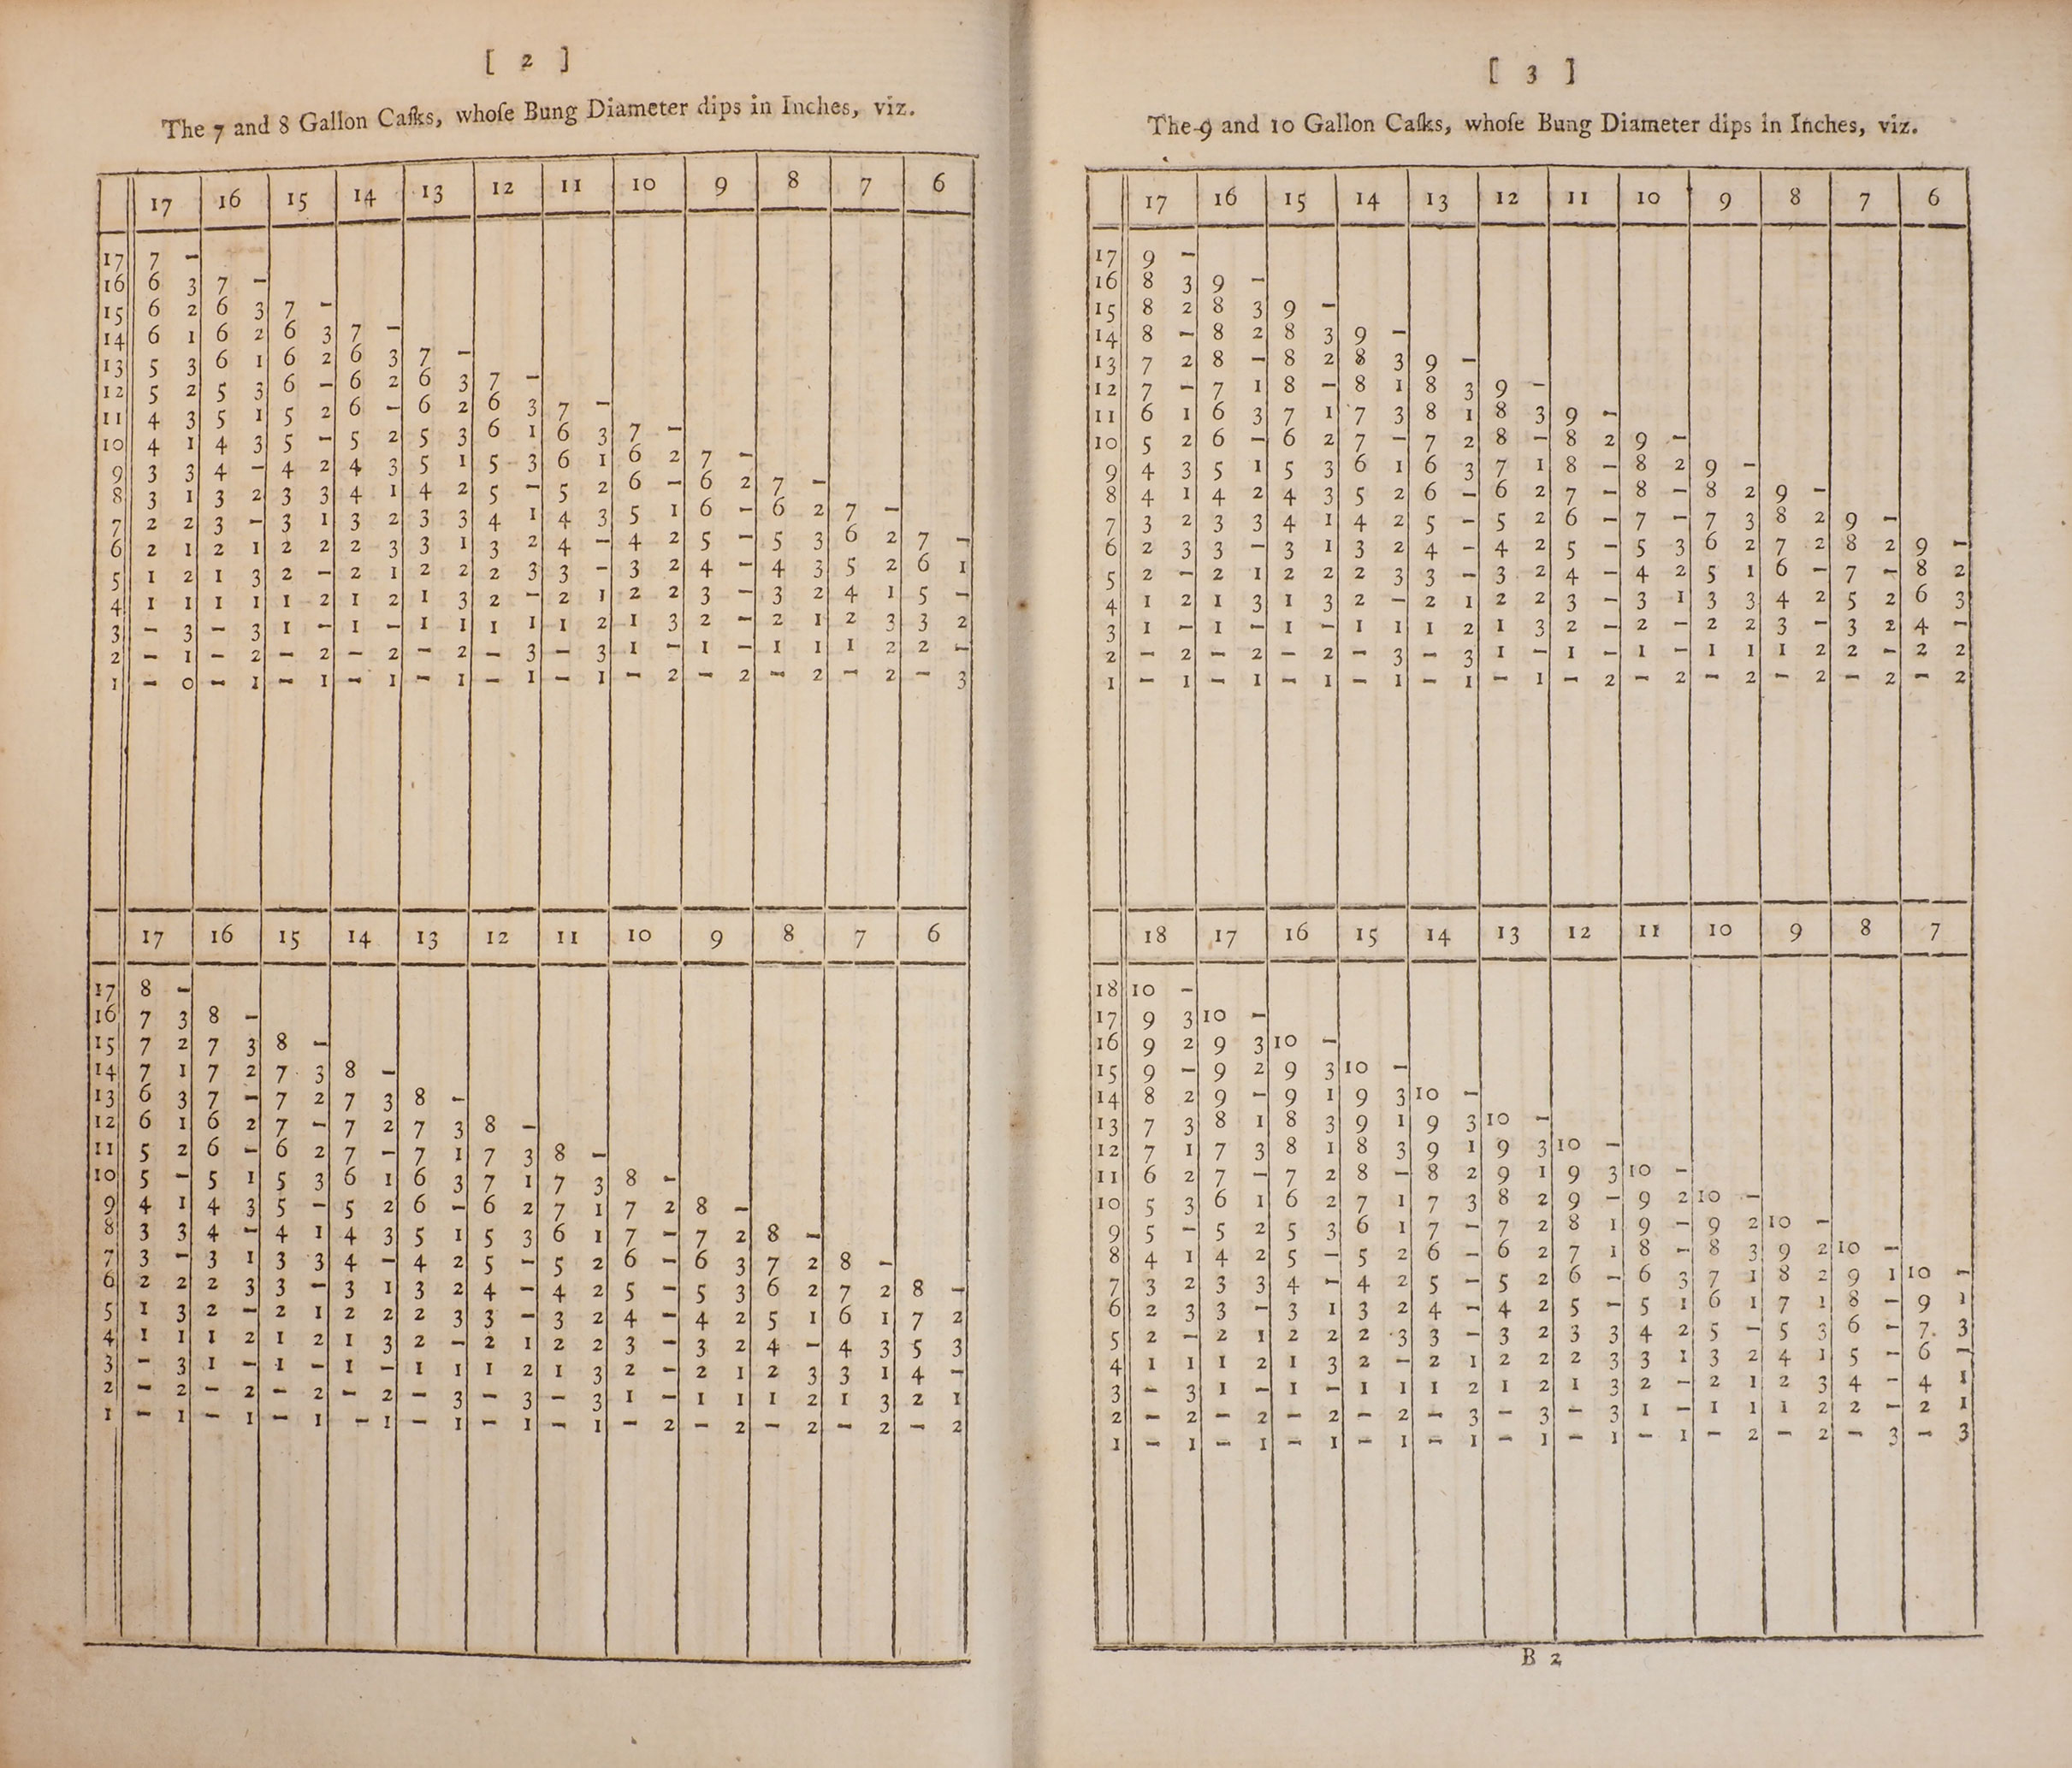 [ 2 ]
The 7 and 8 Gallon Caſks, whoſe Bung Diameter dips in Inches, viz.
17 16 15 14 13 12 11 10 9 8 7 6
17 7 -
16 6 3 7 -
15 6 2 6 3 7 -
14 6 1 6 2 6 3 7 -
13 5 3 6 1 6 2 6 3 7 -
12 5 2 5 3 6 - 6 2 6 3 7 -
11 4 3 5 1 5 2 6 - 6 2 6 3 7 -
10 4 1 4 3 5 - 5 2 5 3 6 1 6 3 7 -
9 3 3 4 - 4 2 4 3 5 1 5 3 6 1 6 2 7 -
8 3 1 3 2 3 3 4 1 4 2 5 - 5 2 6 - 6 2 7 -
7 2 2 3 - 3 1 3 2 3 3 4 1 4 3 5 1 6 - 6 2 7 -
6 2 1 2 1 2 2 2 3 3 1 3 2 4 - 4 2 5 - 5 3 6 2 7 -
5 1 2 1 3 2 - 2 1 2 2 2 3 3 - 3 2 4 - 4 3 5 2 6 1
4 1 1 1 1 1 2 1 2 1 3 2 - 2 1 2 2 3 - 3 2 4 1 5 -
3 - 3 - 3 1 - 1 - 1 1 1 1 1 2 1 3 2 - 2 1 2 3 3 2
2 - 1 - 2 - 2 - 2 - 2 - 3 - 3 1 - 1 - 1 1 1 2 2 -
1 - 0 - 1 - 1 - 1 - 1 - 1 - 1 - 2 - 2 - 2 - 2 - 3
17 16 15 14 13 12 11 10 9 8 7 6
17 8 -
16 7 3 8 -
15 7 2 7 3 8 -
14 7 1 7 2 7 3 8 -
13 6 3 7 - 7 2 7 3 8 -
12 6 1 6 2 7 - 7 2 7 3 8 -
11 5 2 6 - 6 2 7 - 7 1 7 3 8 -
10 5 - 5 1 5 3 6 1 6 3 7 1 7 3 8 -
9 4 1 4 3 5 - 5 2 6 - 6 2 7 1 7 2 8 -
8 3 3 4 - 4 1 4 3 5 1 5 3 6 1 7 - 7 2 8 -
7 3 - 3 1 3 3 4 - 4 2 5 - 5 2 6 - 6 3 7 2 8 -
6 2 2 2 3 3 - 3 1 3 2 4 - 4 2 5 - 5 3 6 2 7 2 8 -
5 1 3 2 - 2 1 2 2 2 3 3 - 3 2 4 - 4 2 5 1 6 1 7 2
4 1 1 1 2 1 2 1 3 2 - 2 1 2 2 3 - 3 2 4 - 4 3 5 3
3 - 3 1 - 1 - 1 - 1 1 1 2 1 3 2 - 2 1 2 3 3 1 4 -
2 - 2 - 2 - 2 - 2 - 3 - 3 - 3 1 - 1 1 1 2 1 3 2 1
1 - 1 - 1 - 1 - 1 - 1 - 1 - 1 - 2 - 2 - 2 - 2 - 2
[ 3 ]
The 9 and 10 Gallon Caſks, whoſe Bung Diameter dips in Inches, viz.
17 16 15 14 13 12 11 10 9 8 7 6
17 9 -
16 8 3 9 -
15 8 2 8 3 9 -
14 8 - 8 2 8 3 9 -
13 7 2 8 - 8 2 8 3 9 -
12 7 - 7 1 8 - 8 1 8 3 9 -
11 6 1 6 3 7 1 7 3 8 1 8 3 9 -
10 5 2 6 - 6 2 7 - 7 2 8 - 8 2 9 -
9 4 3 5 1 5 3 6 1 6 3 7 1 8 - 8 2 9 -
8 4 1 4 2 4 3 5 2 6 - 6 2 7 - 8 - 8 2 9 -
7 3 2 3 3 4 1 4 2 5 - 5 2 6 - 7 - 7 3 8 2 9 -
6 2 3 3 - 3 1 3 2 4 - 4 2 5 - 5 3 6 2 7 2 8 2 9 -
5 2 - 2 1 2 2 2 3 3 - 3 2 4 - 4 2 5 1 6 - 7 - 8 2
4 1 2 1 3 1 3 2 - 2 1 2 2 3 - 3 1 3 3 4 2 5 2 6 3
3 1 - 1 - 1 - 1 1 1 2 1 3 2 - 2 - 2 2 3 - 3 2 4 -
2 - 2 - 2 - 2 - 3 - 3 1 - 1 - 1 - 1 1 1 2 2 - 2 2
1 - 1 - 1 - 1 - 1 - 1 - 1 - 2 - 2 - 2 - 2 - 2 - 2
18 17 16 15 14 13 12 11 10 9 8 7
18 10 -
17 9 3 10 -
16 9 2 9 3 10 -
15 9 - 9 2 9 3 10 -
14 8 2 9 - 9 1 9 3 10 -
13 7 3 8 1 8 3 9 1 9 3 10 -
12 7 1 7 3 8 1 8 3 9 1 9 3 10 -
11 6 2 7 - 7 2 8 - 8 2 9 1 9 3 10 -
10 5 3 6 1 6 2 7 1 7 3 8 2 9 - 9 2 10 -
9 5 - 5 2 5 3 6 1 7 - 7 2 8 1 9 - 9 2 10 -
8 4 1 4 2 5 - 5 2 6 - 6 2 7 1 8 - 8 3 9 2 10 -
7 3 2 3 3 4 - 4 2 5 - 5 2 6 - 6 3 7 1 8 2 9 1 10 -
6 2 3 3 - 3 1 3 2 4 - 4 2 5 - 5 1 6 1 7 1 8 - 9 1
5 2 - 2 1 2 2 2 3 3 - 3 2 3 3 4 2 5 - 5 3 6 - 7 3
4 1 1 1 2 1 3 2 - 2 1 2 2 2 3 3 1 3 2 4 1 5 - 6 -
3 - 3 1 - 1 - 1 1 1 2 1 2 1 3 2 - 2 1 2 3 4 - 4 1
2 - 2 - 2 - 2 - 2 - 3 - 3 - 3 1 - 1 1 1 2 2 - 2 1
1 - 1 - 1 - 1 - 1 - 1 - 1 - 1 - 1 - 2 - 2 - 3 - 3
B 2